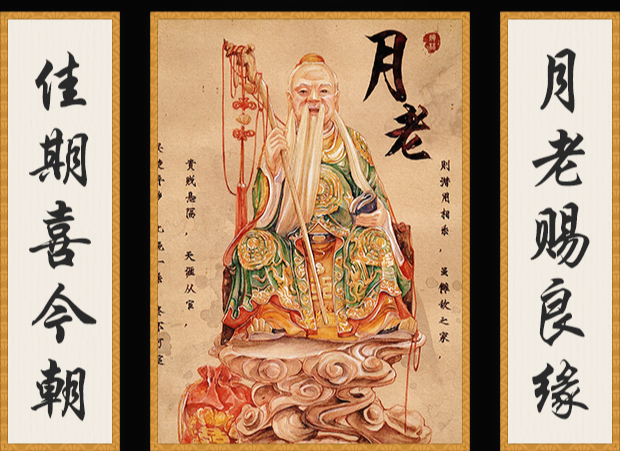 月老赐良缘
月老
则潜用相系，虽雠敌之家，
贵贱悬隔，天涯从宦，
佳期喜今朝